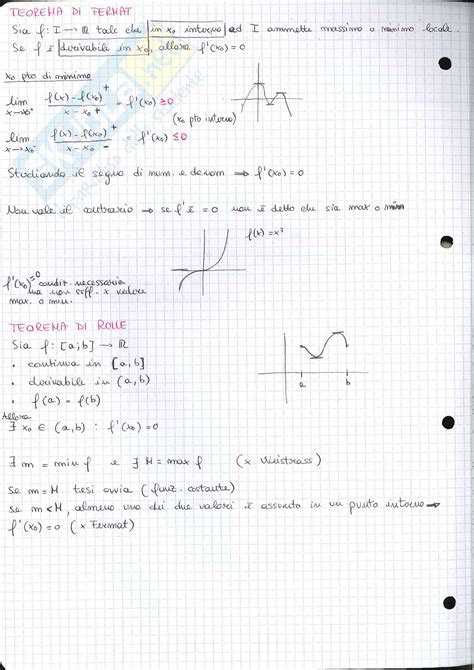 TEOREMA DI FERMAT
Sia f: I → ℝ tale che in x₀ interno ad I ammette massimo o minimo locale.
Se f è derivabile in x₀, allora f'(x₀) = 0
x₀ pto di minimo
lim x→x₀⁺ f(x) - f(x₀) + / x - x₀ + = f'(x₀) ≥ 0
(x₀ pto interno)
lim x→x₀⁻ f(x) - f(x₀) + / x - x₀ - = f'(x₀) ≤ 0
Studiando il segno di num. e denom ⟹ f'(x₀) = 0
Non vale il contrario → se f' è = 0 non è detto che sia max o min
f(x) = x³
f'(x₀) = 0 condiz. necessaria
ma non suff. x vedere
max. o min.
TEOREMA DI ROLLE
Sia f: [a;b] → ℝ
• continua in [a,b]
• derivabile in (a,b)
• f(a) = f(b)
a b
Allora
∃ x₀ ∈ (a,b) : f'(x₀) = 0
∃ m = min f e ∃ M = max f (x Weistrass)
Se m = M tesi ovvia (funz. costante)
Se m < M, almeno uno dei due valori è assunto in un punto interno →
f'(x₀) = 0 (x Fermat)